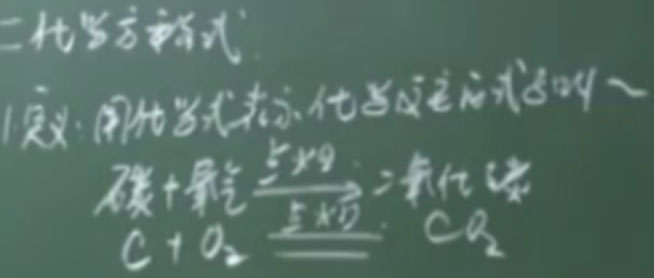 二化学方程式
1.定义:用化学式表示化学反应的式子叫~
碳+氧气 点燃→ 二氧化碳
C+O₂ 点燃═ CO₂